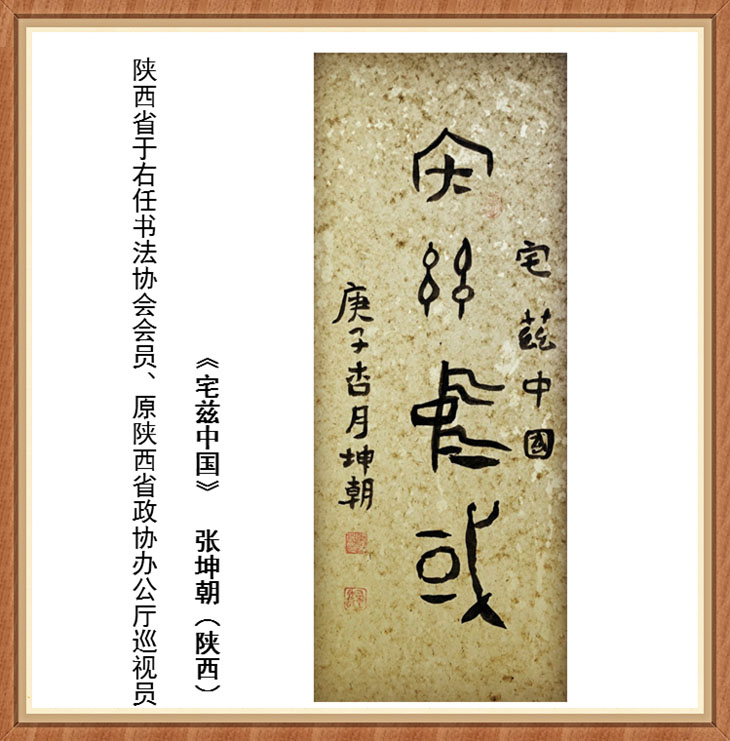 宅兹中或
宅茲中國
庚子杏月坤朝
《宅兹中国》 张坤朝（陕西）
陕西省于右任书法协会会员、原陕西省政协办公厅巡视员